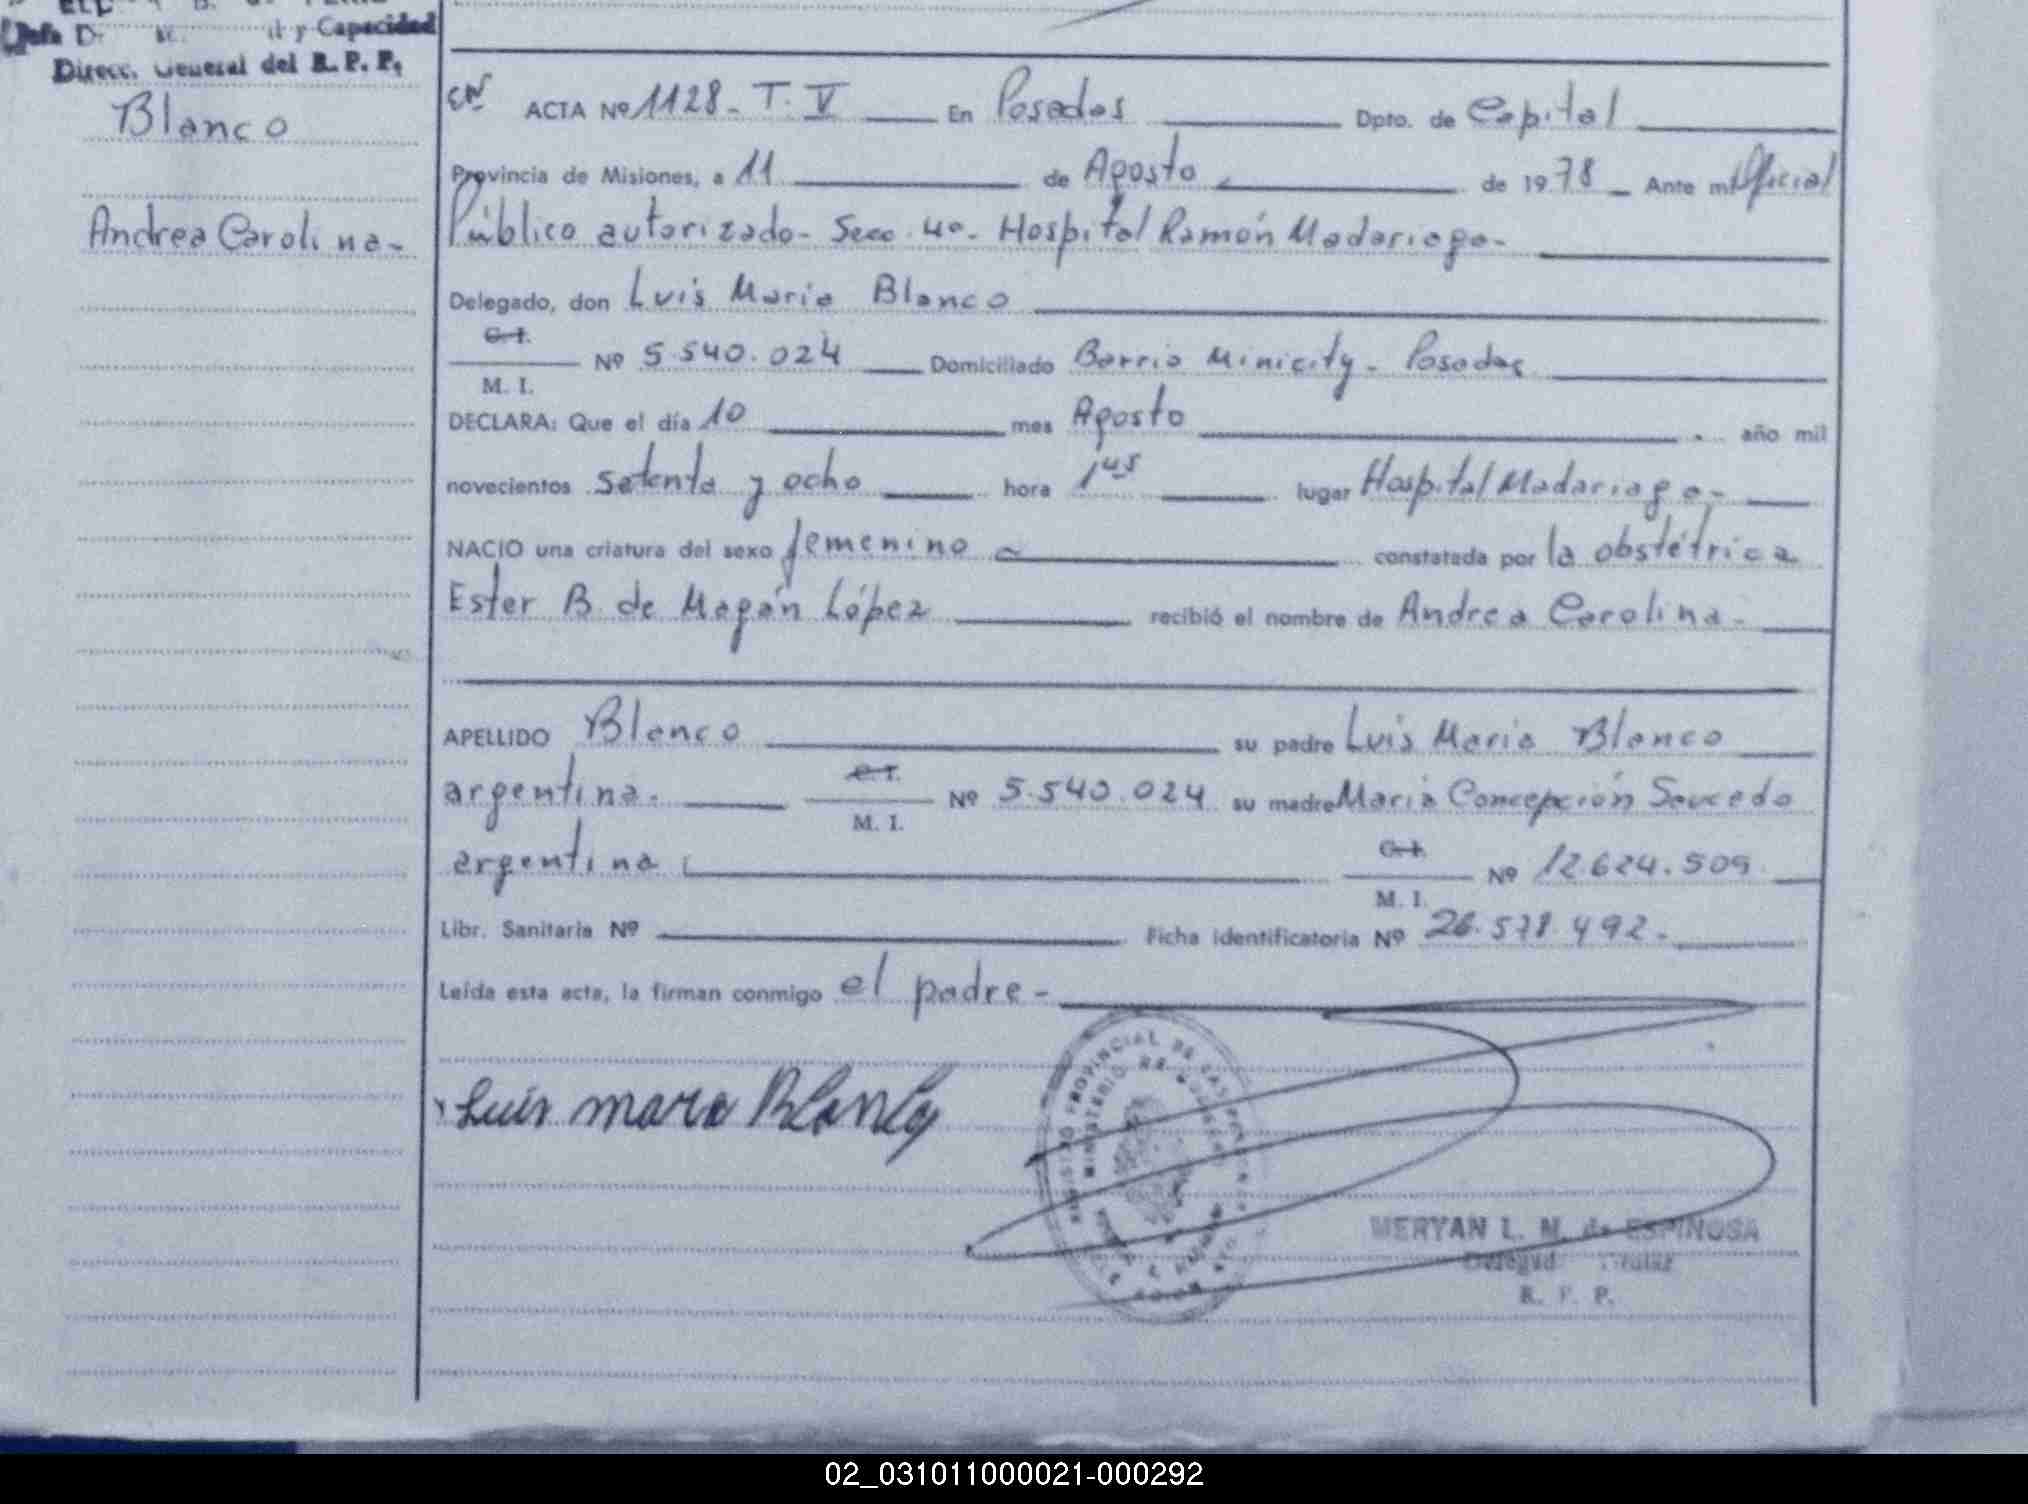 y Capacidad
Direcc. General del R. P. P.
Blanco
Andrea Carolina-
ACTA Nº 1128- T. V En Posadas Dpto. de Capital
Provincia de Misiones, a 11 de Agosto de 1978 Ante mi Oficial
Público autorizado- Secc. 4ª- Hospital Ramón Madariaga-
Delegado, don Luis Maria Blanco
C. I.
Nº 5.540.024 Domiciliado Barrio Minicity- Posadas
M. I.
DECLARA: Que el día 10 mes Agosto año mil
novecientos setenta y ocho hora 1 45 lugar Hospital Madariaga-
NACIO una criatura del sexo femenino constatada por la obstétrica
Ester B. de Magán López recibió el nombre de Andrea Carolina-
APELLIDO Blanco su padre Luis Maria Blanco
C. I.
argentina. Nº 5.540.024 su madre Maria Concepción Saucedo
M. I.
argentina
C. I.
Nº 12.624.509
M. I.
Libr. Sanitaria Nº Ficha identificatoria Nº 26.578.492-
Leída esta acta, la firman conmigo el padre-
Luis mara Blanco
REGISTRO PROVINCIAL DE LAS PERSONAS
MINISTERIO DE GOBIERNO
MERYAN L. M. de ESPINOSA
Titular
R. P. P.
02_031011000021-000292